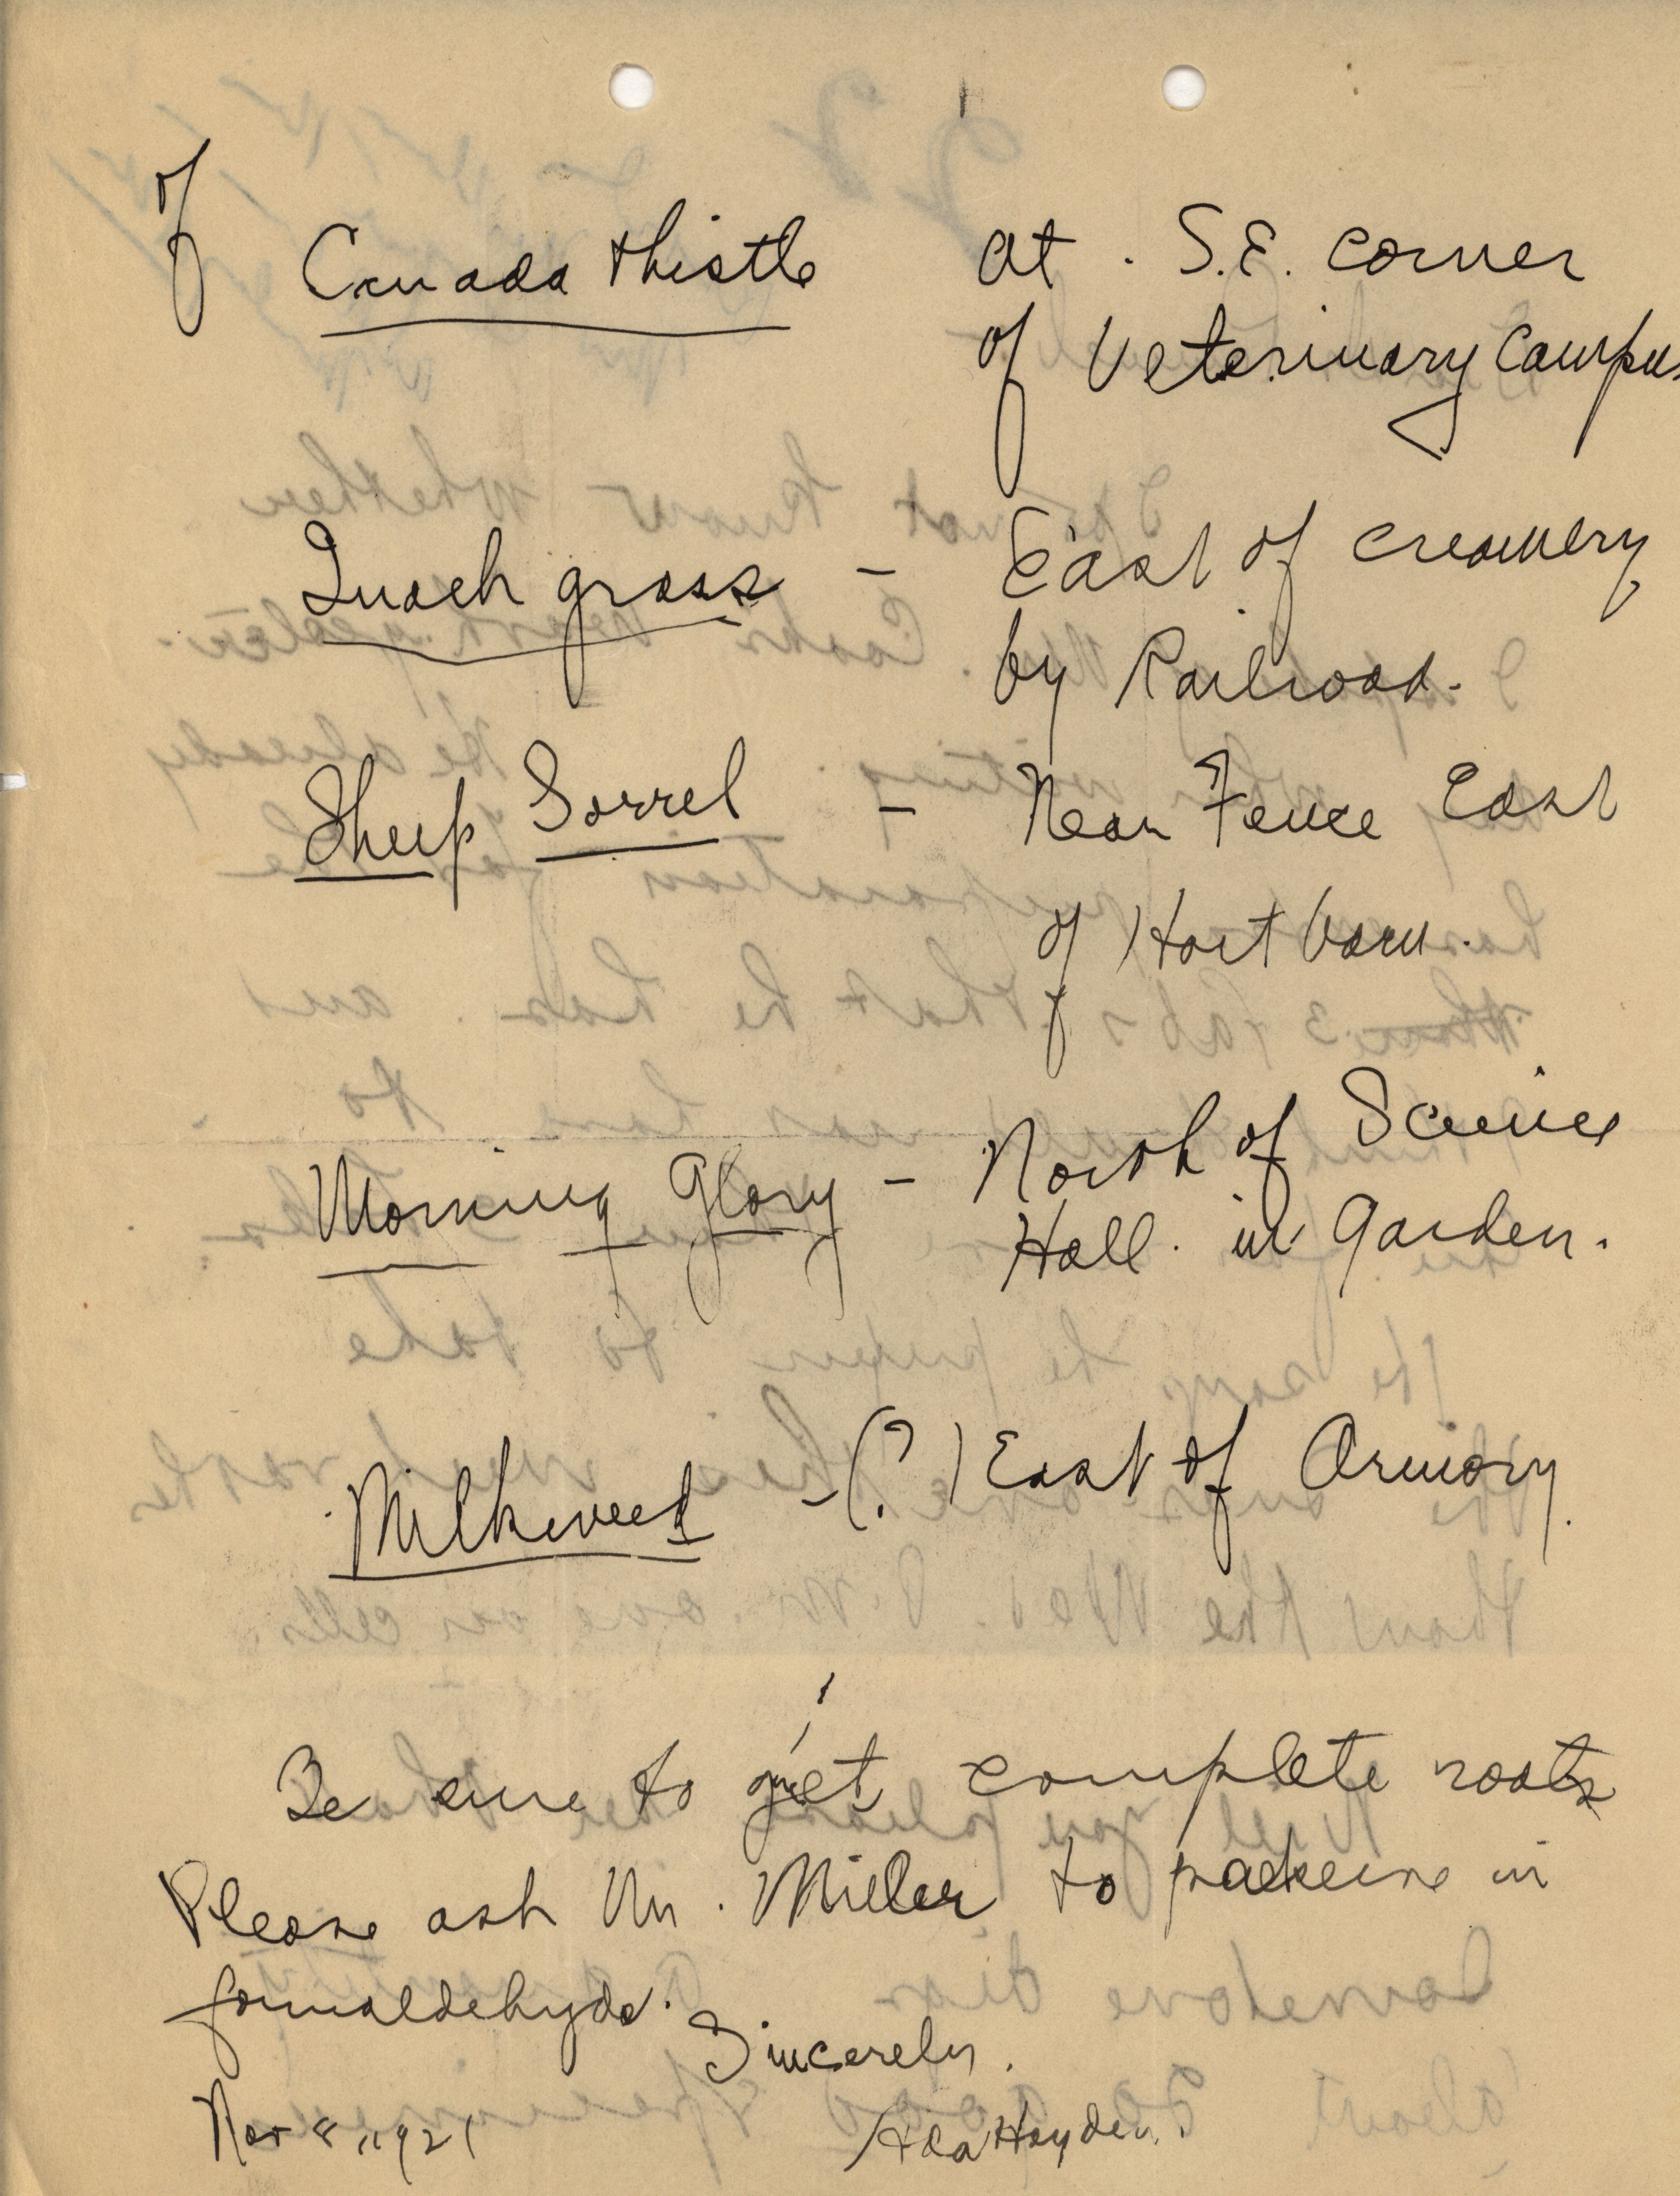 of
Canada thistle at . S.E. corner
of Veterinary Campus
Quack grass - East of creamery
by Railroad.
Sheep Sorrel - Near Fence East
of Hort barn.
Morning Glory - North of Science
Hall. in Garden.
Milkweed -(?) East of Armory.
Be sure to get complete roots
Please ask Mr. Miller to in
formaldehyde.
Sincerely.
Nov 8, 1921 Ada Hayden.